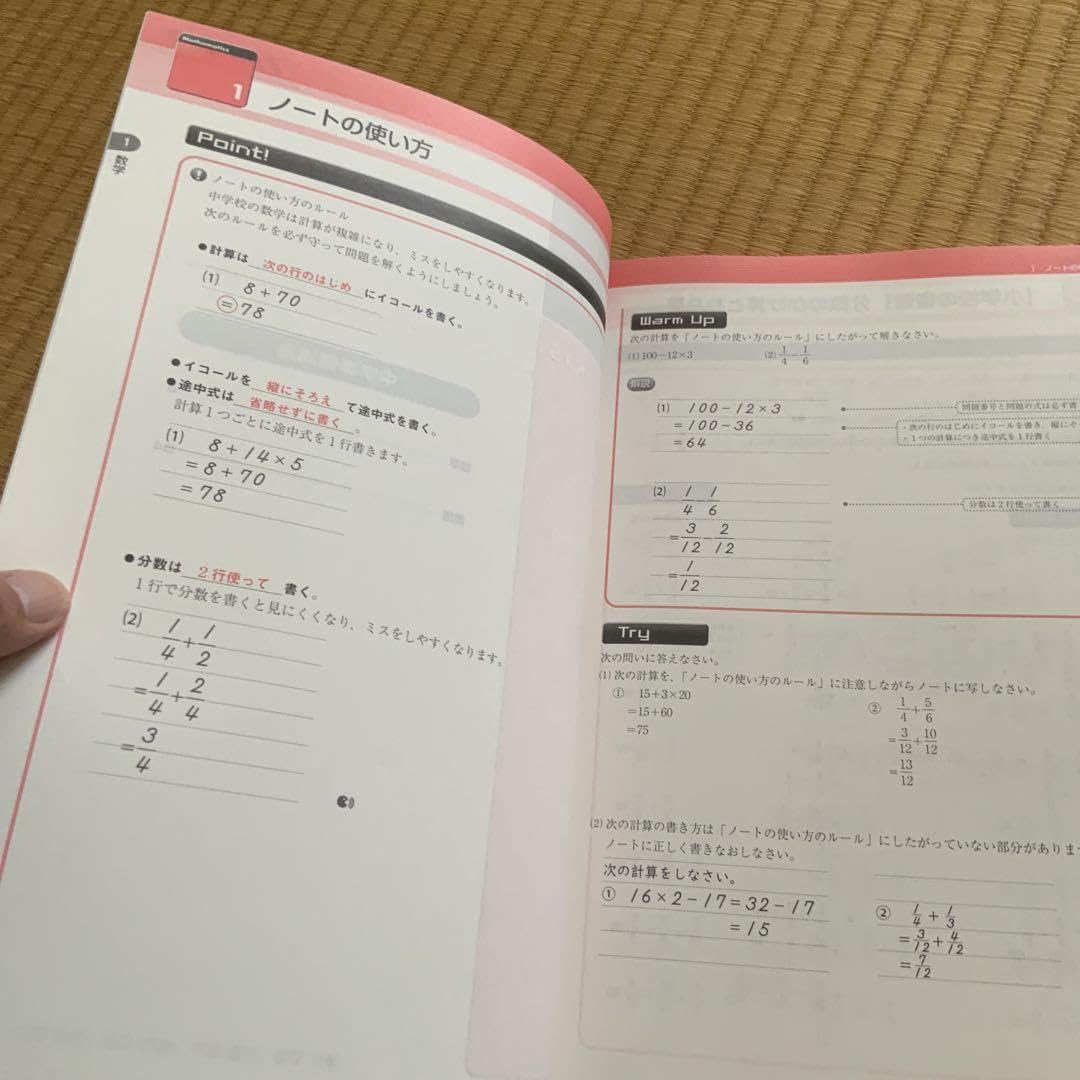 Mathematics
1
ノートの使い方
1
数学
Point!
ノートの使い方のルール
中学校の数学は計算が複雑になり，ミスをしやすくなります。
次のルールを必ず守って問題を解くようにしましょう。
●計算は 次の行のはじめ にイコールを書く。
(1) 8+70
=78
●イコールを 縦にそろえ て途中式を書く。
●途中式は 省略せずに書く 。
計算1つごとに途中式を1行書きます。
(1) 8+14×5
=8+70
=78
●分数は 2行使って 書く。
1行で分数を書くと見にくくなり，ミスをしやすくなります。
(2) 1/4+1/2
=1/4+2/4
=3/4
1 ノートの
Warm Up
次の計算を「ノートの使い方のルール」にしたがって解きなさい。
(1) 100-12×3 (2) 1/4-1/6
解説
(1) 100-12×3
=100-36
=64
問題番号と問題の式は必ず書
・次の行のはじめにイコールを書き，縦にそ
・1つの計算につき途中式を1行書く
(2) 1/4 1/6
=3/12-2/12
=1/12
分数は2行使って書く
Try
次の問いに答えなさい。
(1) 次の計算を，「ノートの使い方のルール」に注意しながらノートに写しなさい。
① 15+3×20
=15+60
=75
② 1/4+5/6
=3/12+10/12
=13/12
(2) 次の計算の書き方は「ノートの使い方のルール」にしたがっていない部分がありま
ノートに正しく書きなおしなさい。
次の計算をしなさい。
① 16×2-17=32-17
=15
② 1/4+1/3
=3/12+4/12
=7/12